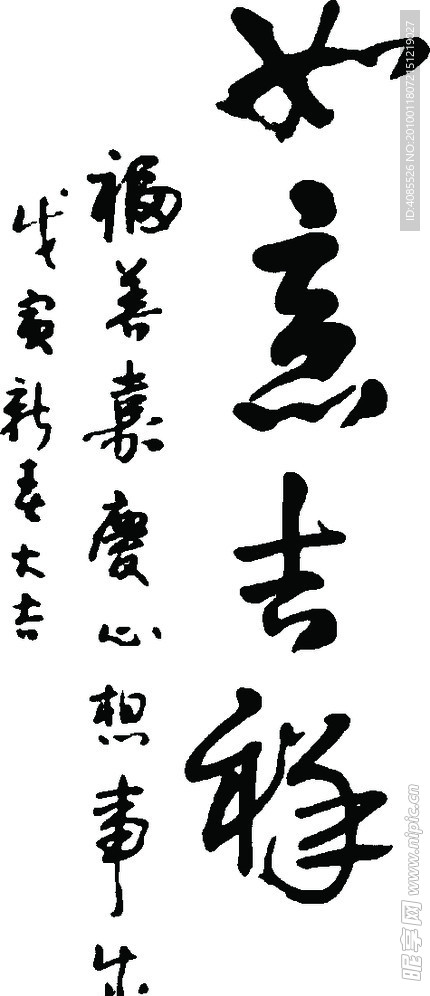 如意吉祥
福善嘉慶心想事成
戊寅新春大吉
ID:4085526 NO:20100118072151219027
昵享网 www.nipic.cn